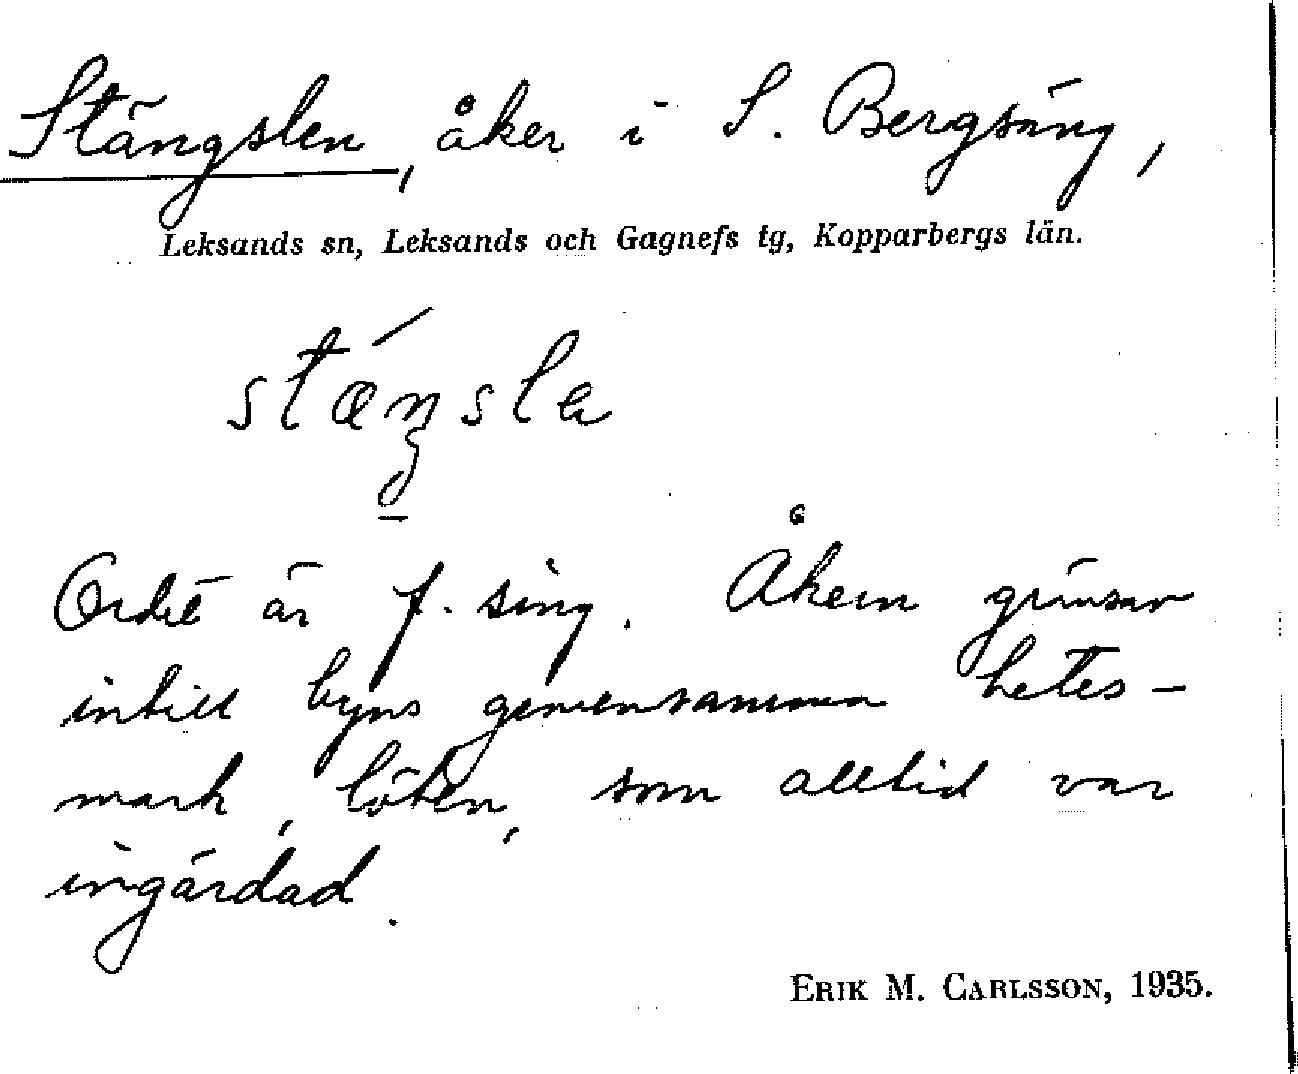 Stängslen, åker i S. Bergsäng,
Leksands sn, Leksands och Gagnefs tg, Kopparbergs län.
stæŋsla
Ordet är f. sing. Åkern gränsar
intill byns gemensamma betes-
mark, löten, som alltid var
ingärdad.
ERIK M. CARLSSON, 1935.